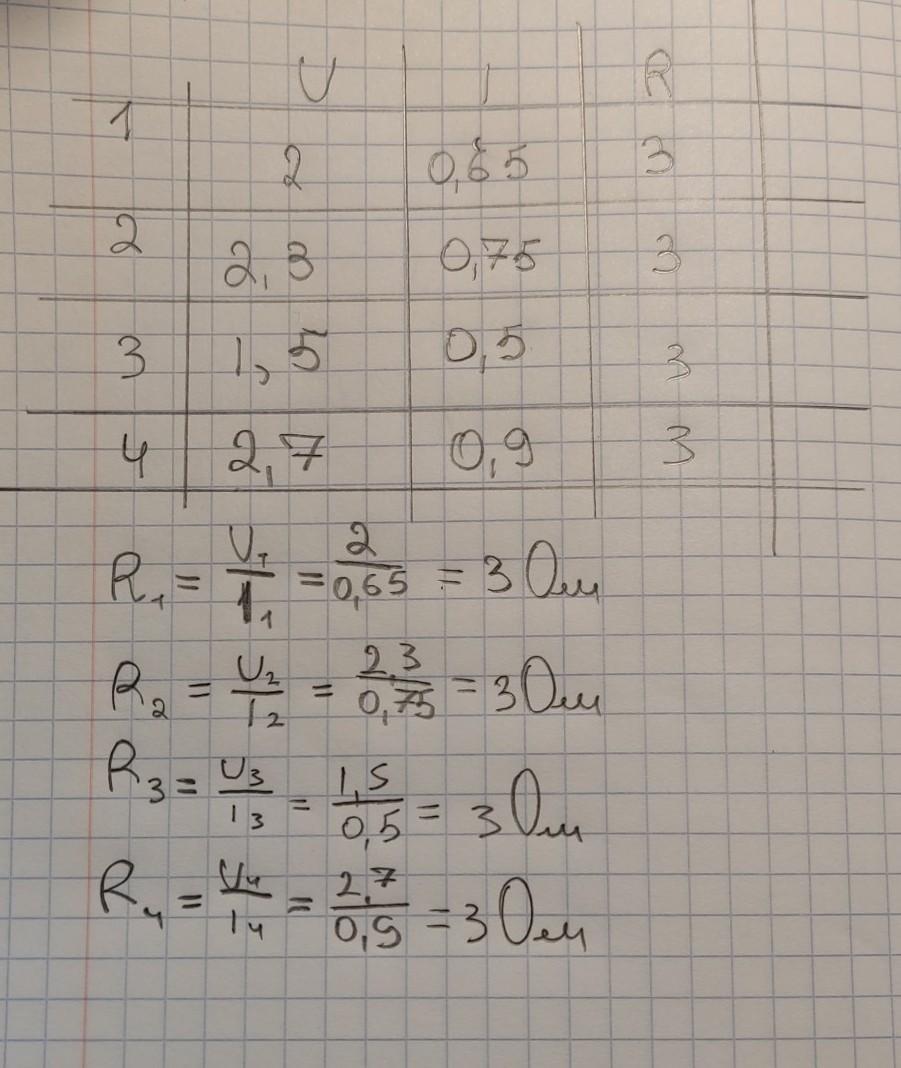 U I R
1 2 0,65 3
2 2,3 0,75 3
3 1,5 0,5 3
4 2,7 0,9 3
R₁ = U₁/I₁ = 2/0,65 = 3 Ом
R₂ = U₂/I₂ = 2,3/0,75 = 3 Ом
R₃ = U₃/I₃ = 1,5/0,5 = 3 Ом
R₄ = U₄/I₄ = 2,7/0,9 = 3 Ом